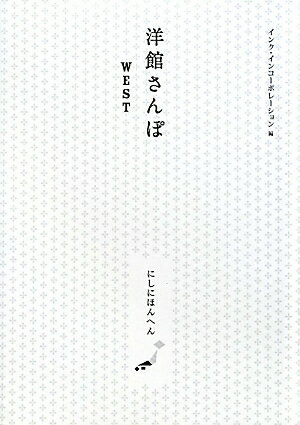 インク・インコーポレーション 編
洋館さんぽ
WEST
にしにほんへん